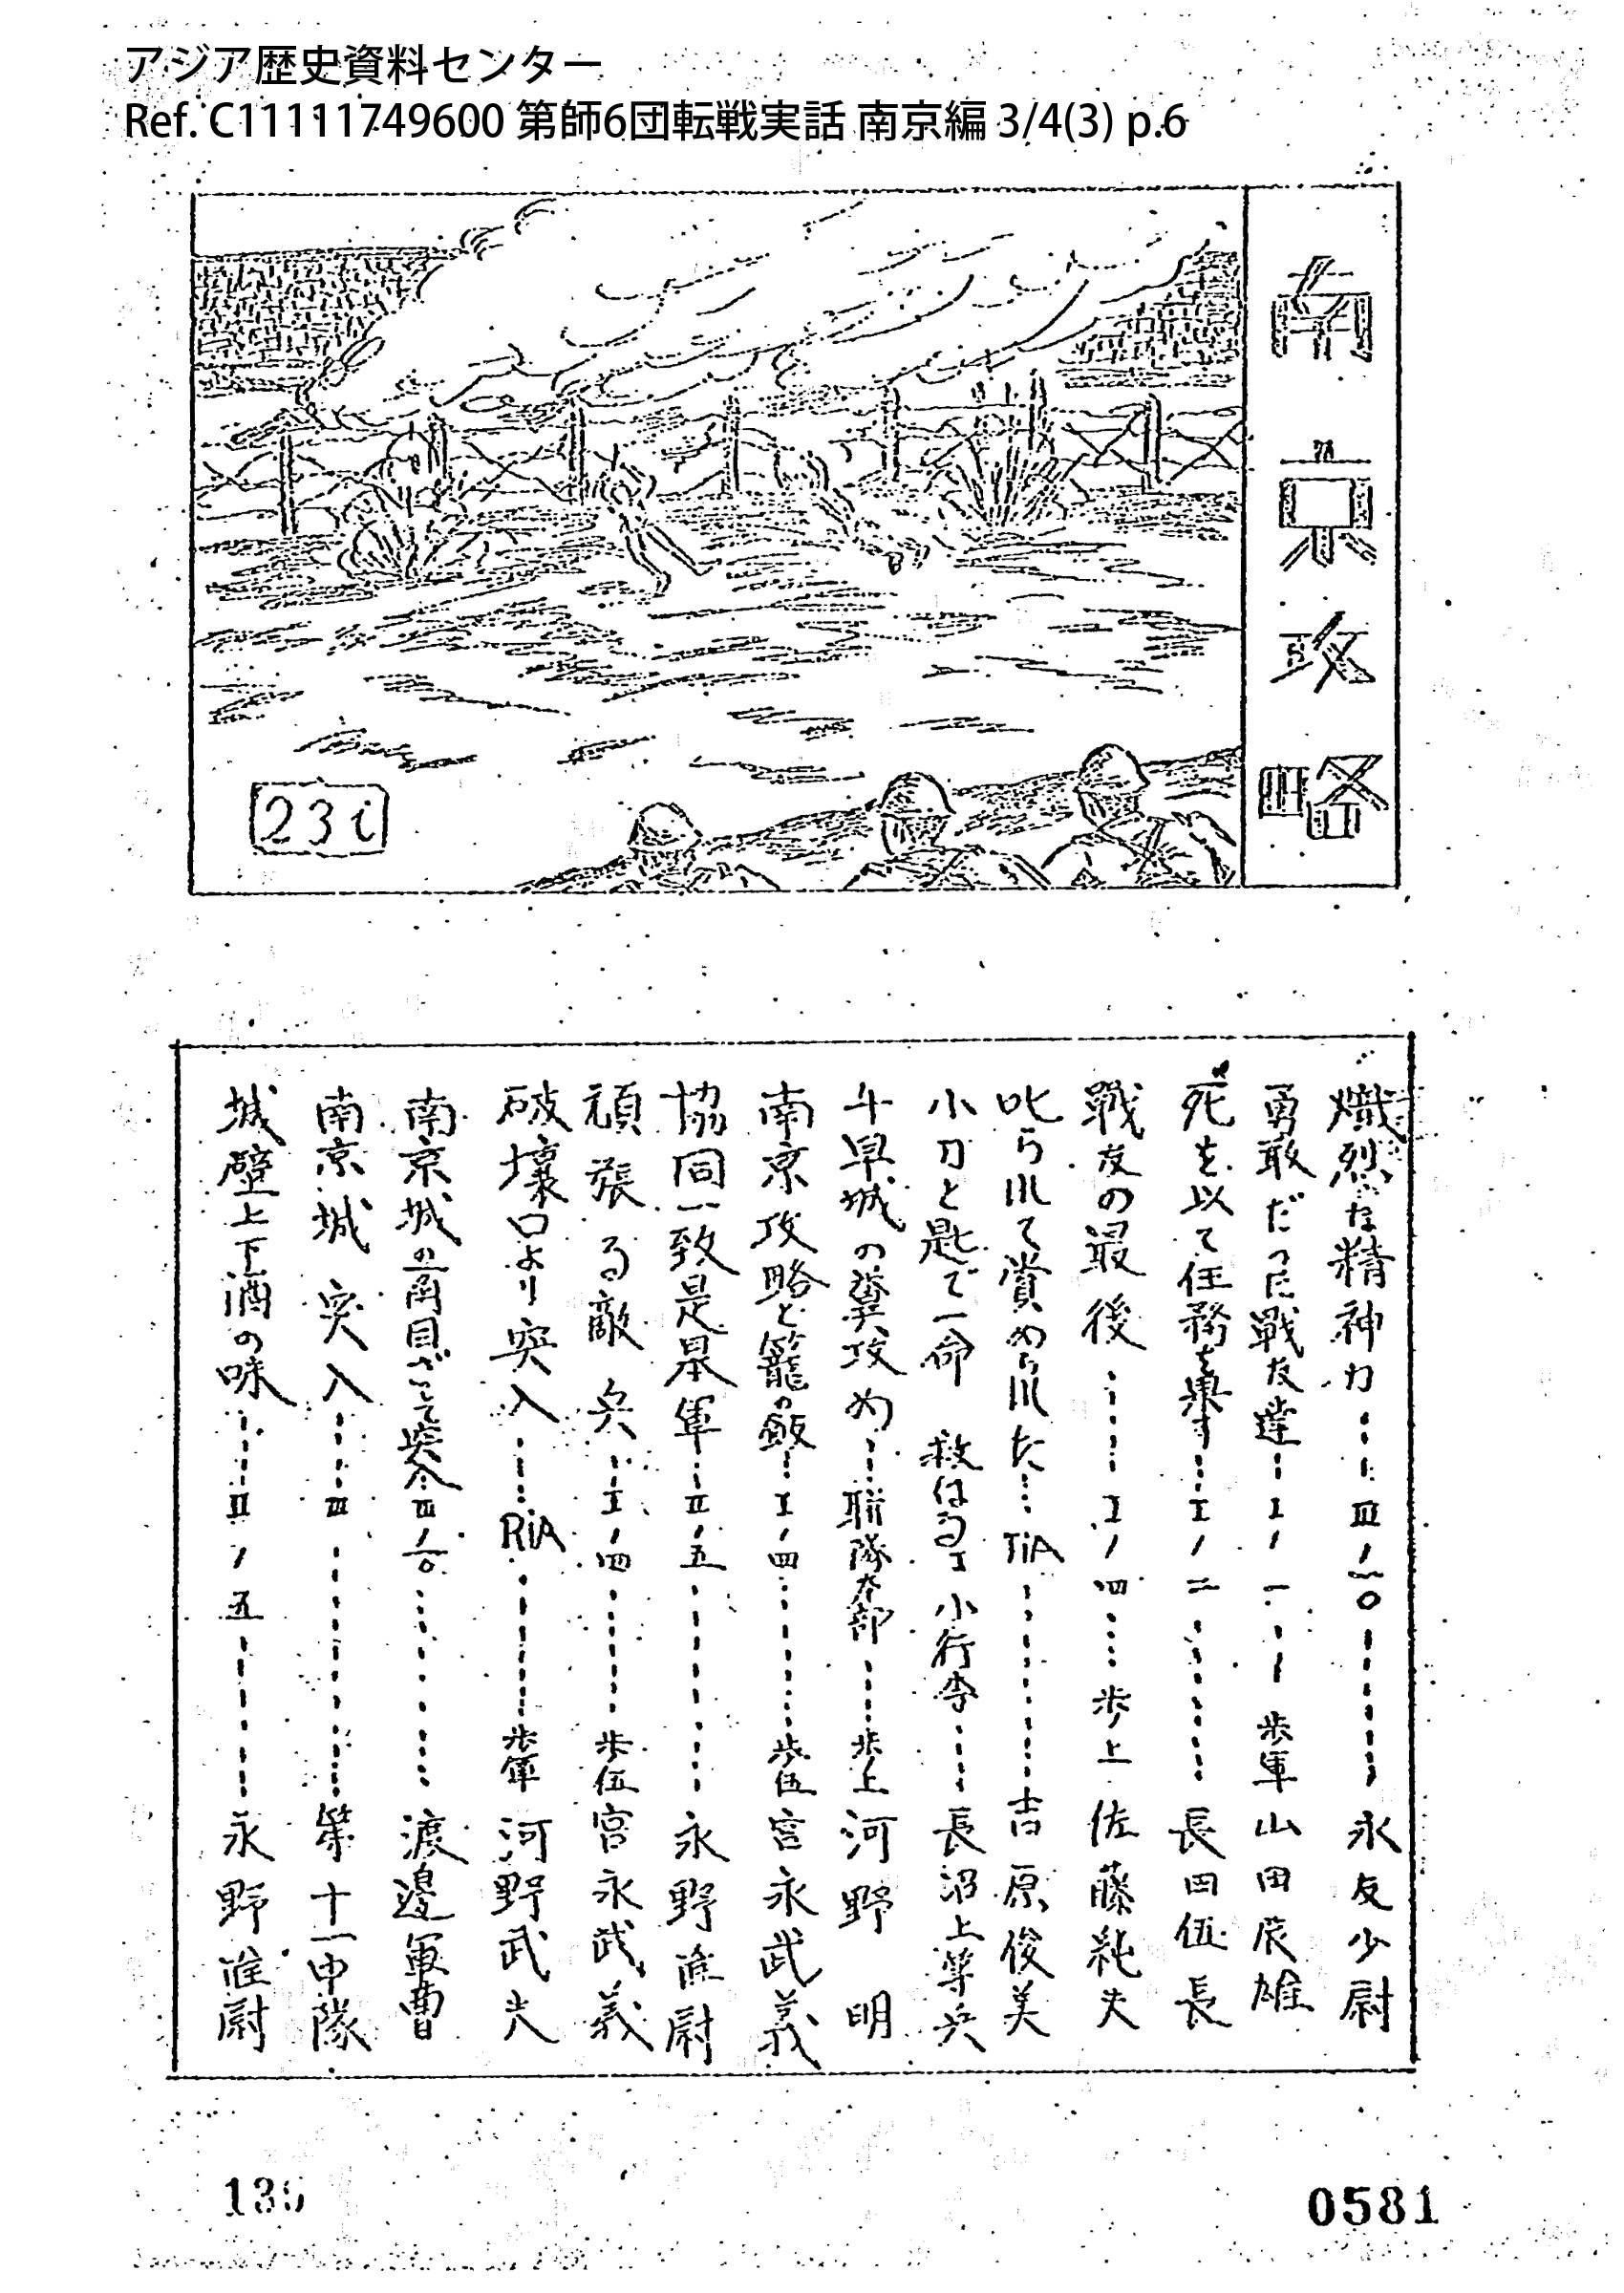 アジア歴史資料センター
Ref. C11111749600 第師6団転戦実話 南京編 3/4(3) p.6
南京攻略
23i
熾烈な精神力……Ⅲ/一〇……永友少尉
勇敢だった戦友達……Ⅰ/一……歩軍 山田辰雄
死を以て任務を果す……Ⅰ/二……長田伍長
戦友の最後……Ⅰ/四……歩上 佐藤純夫
叱られて賞められた……TiA……吉原俊美
小刀と匙で一命救はる Ⅰ小行李……長沼上等兵
千早城の糞攻め……聯隊本部……歩上 河野 明
南京攻略と籠の飯……Ⅰ/四……歩伍 宮永武義
協同一致是皇軍……Ⅱ/五……永野准尉
頑張る敵兵……Ⅰ/四……歩伍 宮永武義
破壊口より突入……RiA……歩軍 河野武夫
南京城の一角目ざして突入 Ⅲ/一〇……渡邊軍曹
南京城突入……Ⅲ……第十一中隊
城壁上下酒の味……Ⅱ/五……永野准尉
0581